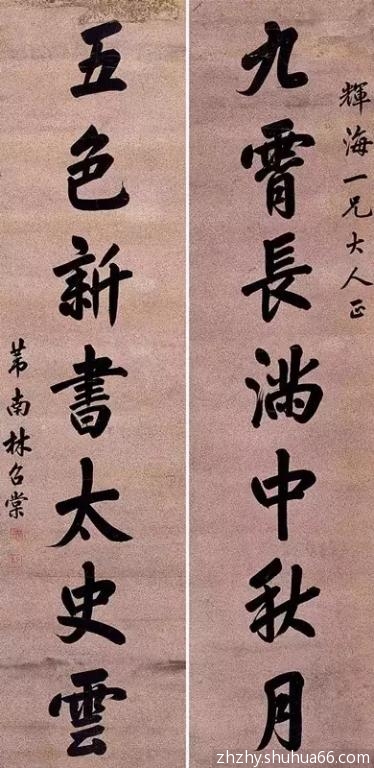 輝海一兄大人正
九霄長滿中秋月
五色新書太史雲
芾南林召棠
zhzhy.shuhua66.com